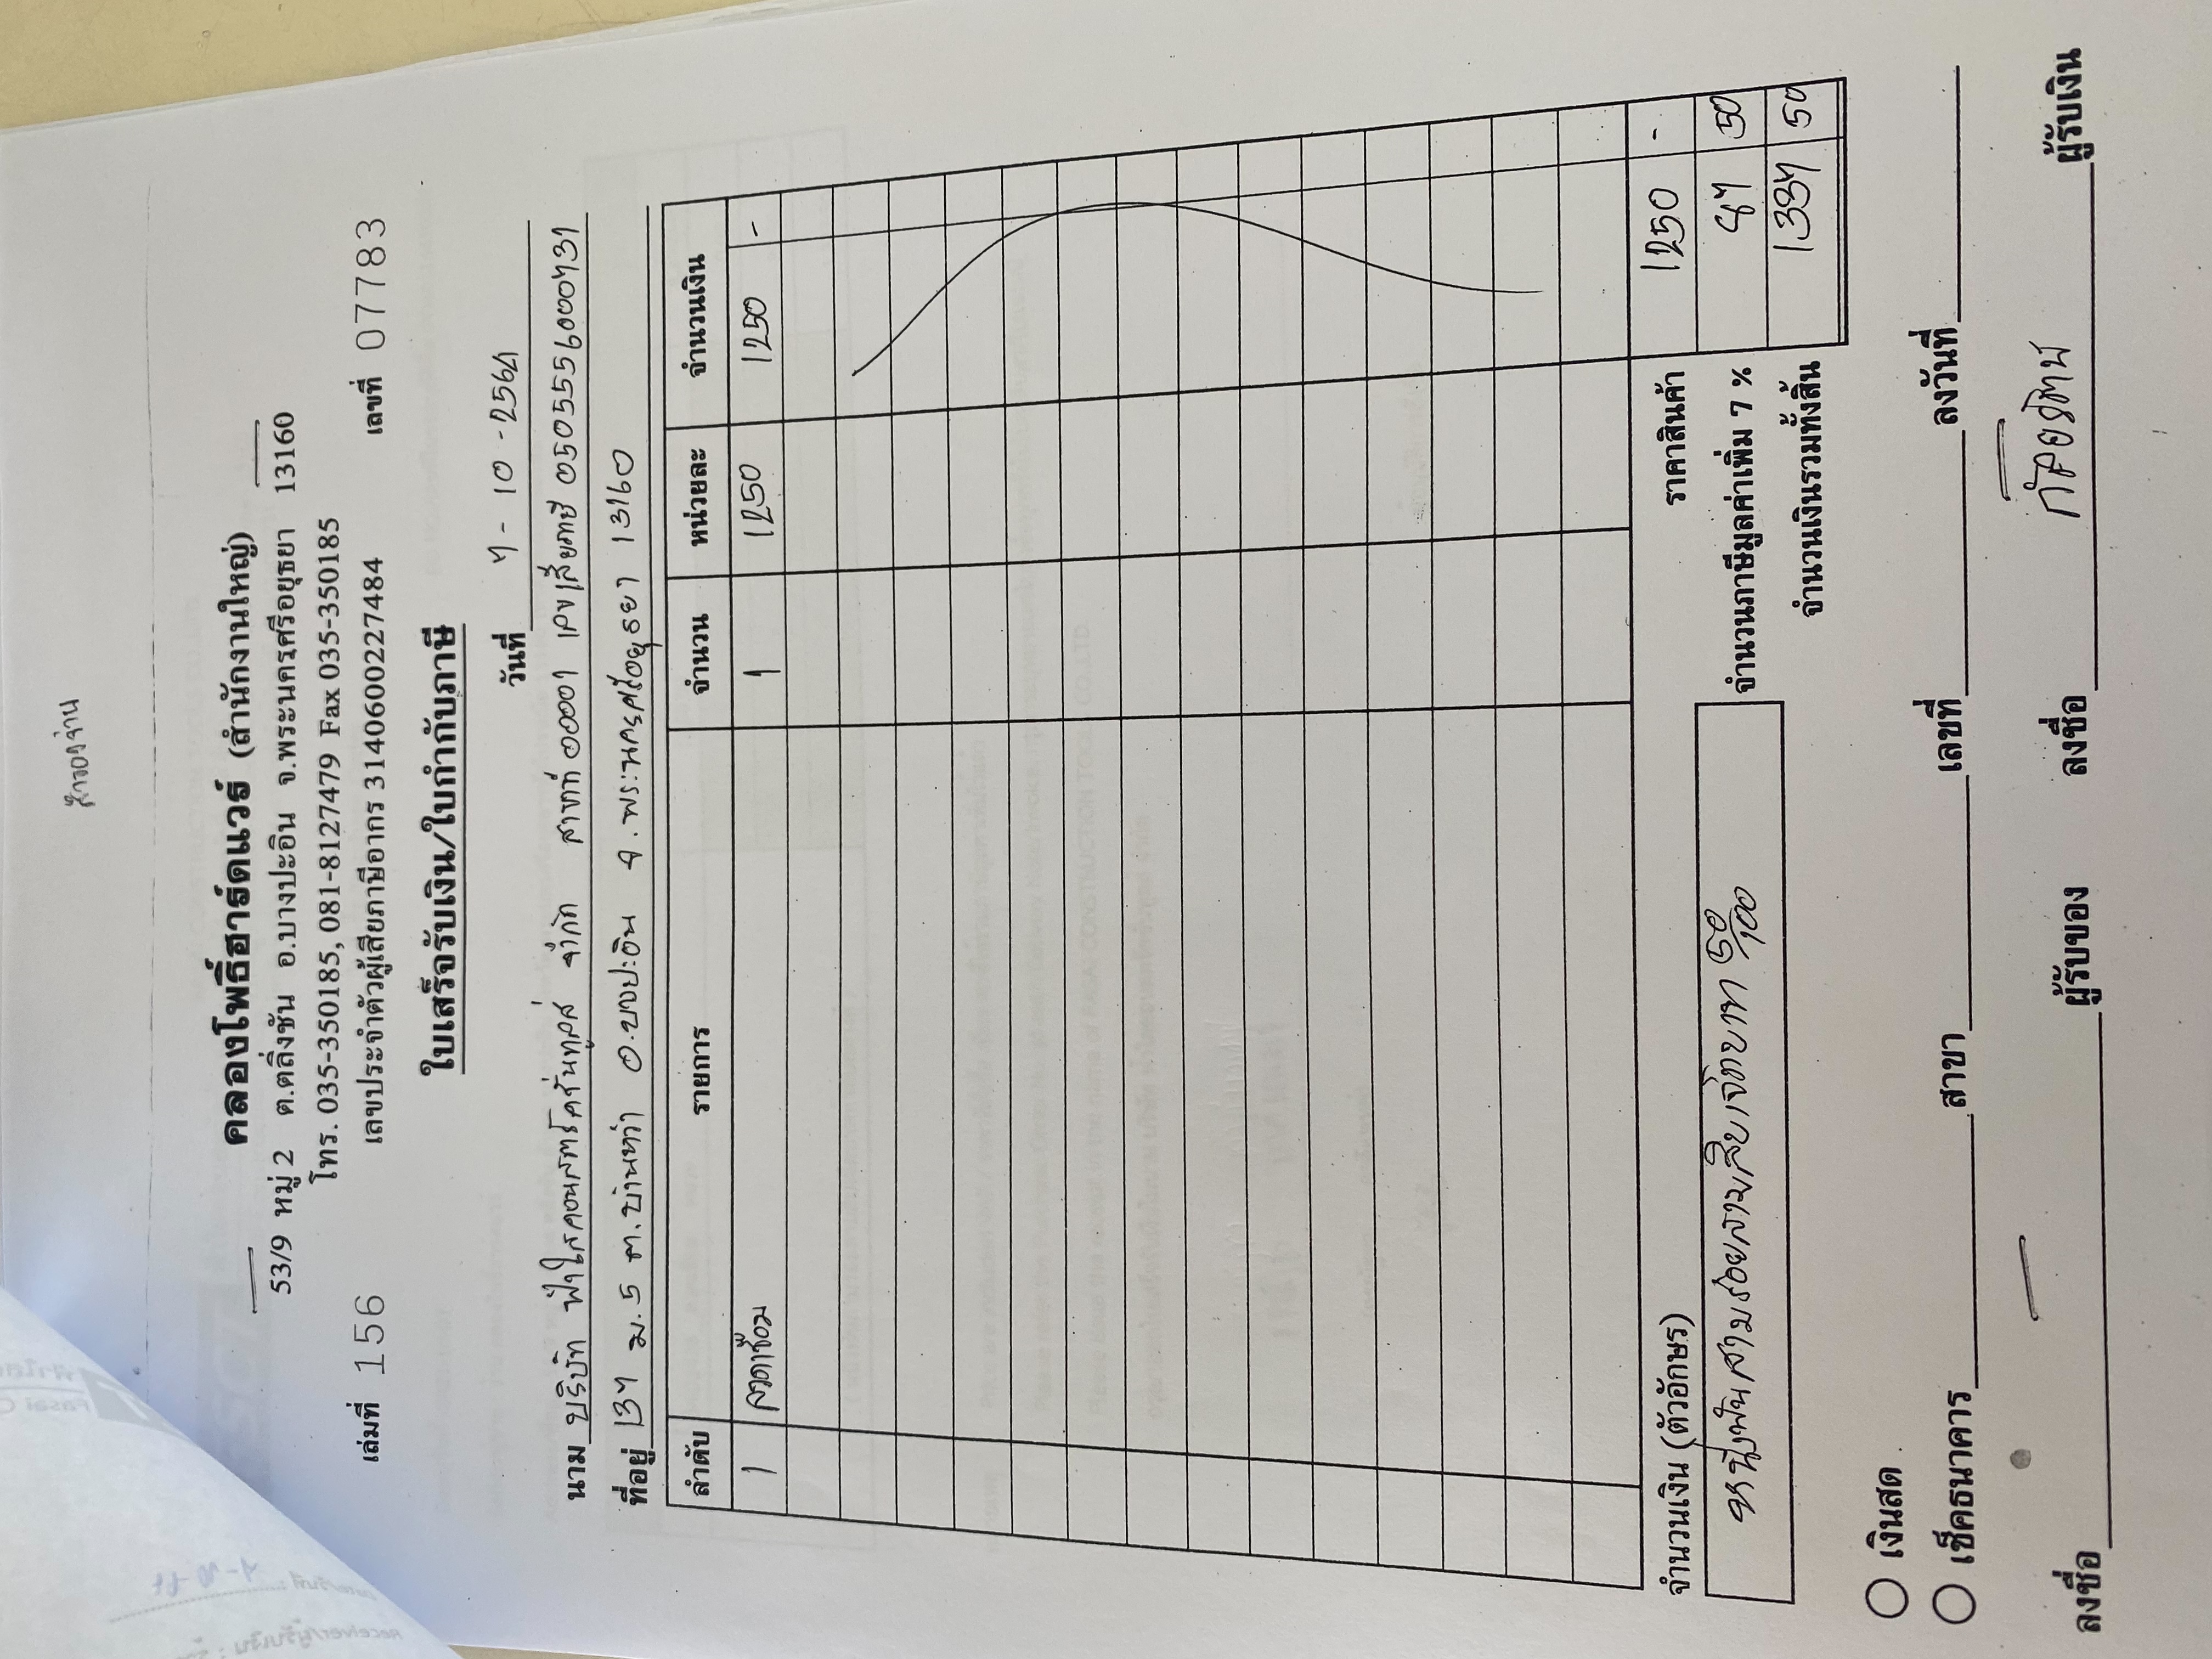 สำรองจ่าย
คลองโพธิ์ฮาร์ดแวร์ (สำนักงานใหญ่)
53/9 หมู่ 2 ต.ตลิ่งชัน อ.บางปะอิน จ.พระนครศรีอยุธยา 13160
โทร. 035-350185, 081-8127479 Fax 035-350185
เล่มที่ 156 เลขประจำตัวผู้เสียภาษีอากร 3140600227484 เลขที่ 07783
ใบเสร็จรับเงิน/ใบกำกับภาษี
วันที่ 7-10-2564
นาม บริษัท ฟ้าใสคอนสตรัคชั่นทูลส์ จำกัด สาขาที่ 00001 เลขเสียภาษี 0505556000731
ที่อยู่ 137 ม.5 ต.บ้านหว้า อ.บางปะอิน จ.พระนครศรีอยุธยา 13160
ลำดับ รายการ จำนวน หน่วยละ จำนวนเงิน
1 ลวดเชื่อม 1 1250 1250 -
จำนวนเงิน (ตัวอักษร) ราคาสินค้า 1250 -
หนึ่งพันสามร้อยสามสิบเจ็ดบาท 50/100 จำนวนภาษีมูลค่าเพิ่ม 7 % 87 50
จำนวนเงินรวมทั้งสิ้น 1337 50
เงินสด
เช็คธนาคาร สาขา เลขที่ ลงวันที่
ลงชื่อ ผู้รับของ ลงชื่อ ผู้รับเงิน